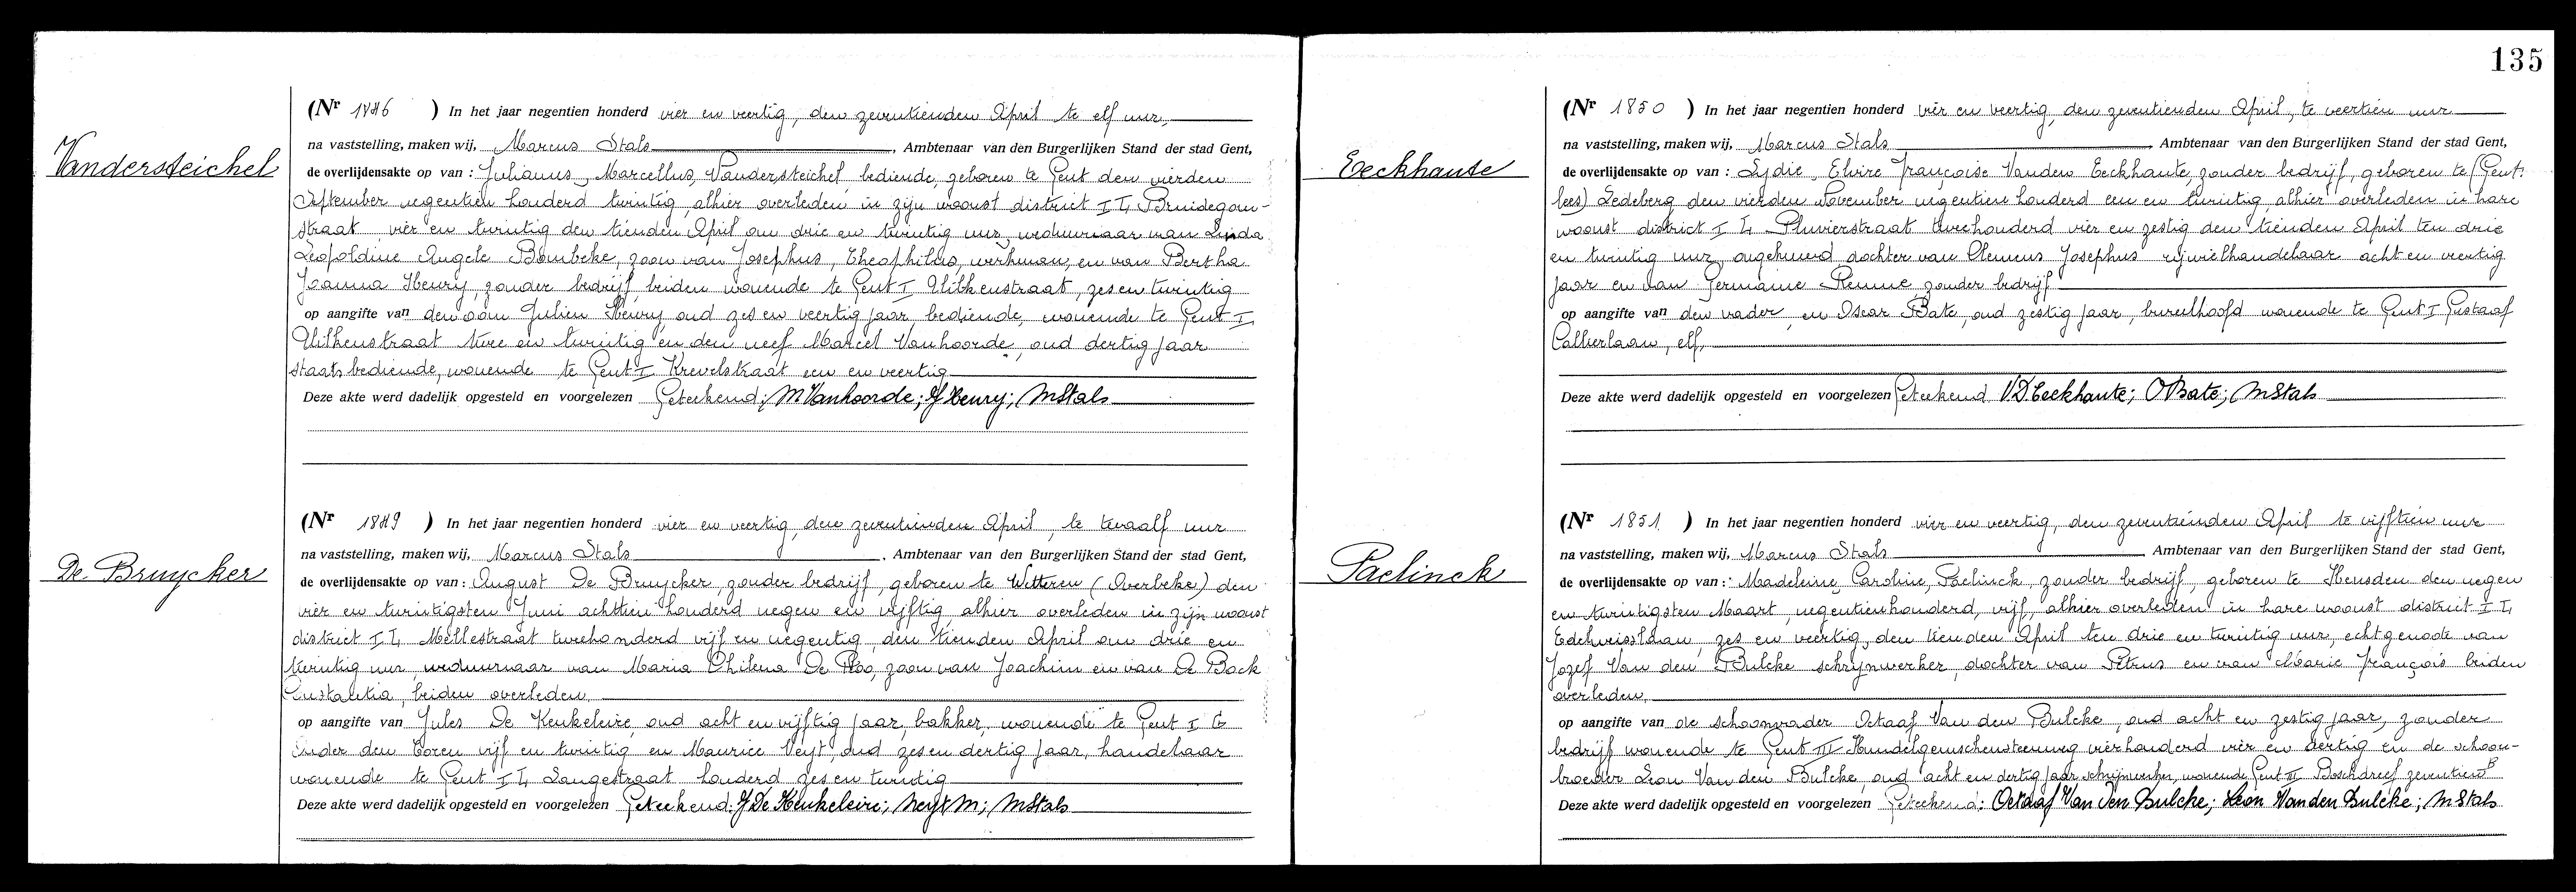 Vandersteichel
(Nr 1846 ) In het jaar negentien honderd vier en veertig, den zeventienden April te elf uur,
na vaststelling, maken wij, Marcus Stals, Ambtenaar van den Burgerlijken Stand der stad Gent,
de overlijdensakte op van : Julianus, Marcellus, Vandersteichel, bediende, geboren te Gent den vierden
September negentien honderd twintig, alhier overleden in zijn woonst district I L, Bruidegom-
straat vier en twintig den tienden April om drie en twintig uur, weduwnaar van Linda
Leopoldine Angele Bombeke, zoon van Josephus, Theophilus, werkman, en van Bertha
Joanna Henry, zonder bedrijf, beiden wonende te Gent I straat, zes en twintig
op aangifte van den oom Julien Henry, oud zes en veertig jaar, bediende, wonende te Gent I
straat twee en twintig en den neef Marcel Vanhoorde, oud dertig jaar
staatsbediende, wonende te Gent I Krevelstraat een en veertig
Deze akte werd dadelijk opgesteld en voorgelezen Geteekend: M Vanhoorde; J Henry; MStals
De Bruycker
(Nr 1849 ) In het jaar negentien honderd vier en veertig, den zeventienden April, te twaalf uur
na vaststelling, maken wij, Marcus Stals, Ambtenaar van den Burgerlijken Stand der stad Gent,
de overlijdensakte op van : August De Bruycker, zonder bedrijf, geboren te Wetteren (Overbeke) den
vier en twintigsten Juni achttien honderd negen en vijftig, alhier overleden in zijn woonst
district I L, Mellestraat tweehonderd vijf en negentig, den tienden April om drie en
twintig uur, weduwnaar van Maria Philena De Roo, zoon van Joachim en van De Bock
Constantia, beiden overleden
op aangifte van Jules De Keukeleire, oud acht en vijftig jaar, bakker, wonende te Gent I G
onder den Toren vijf en twintig en Maurice Neyt, oud zes en dertig jaar, handelaar
wonende te Gent I L, Langestraat honderd zes en twintig
Deze akte werd dadelijk opgesteld en voorgelezen Geteekend: J De Keukeleire; Neyt M; MStals
135
Eeckhaute
(Nr 1850 ) In het jaar negentien honderd vier en veertig, den zeventienden April, te veertien uur
na vaststelling, maken wij, Marcus Stals, Ambtenaar van den Burgerlijken Stand der stad Gent,
de overlijdensakte op van : Lydie, Elvire Françoise Vanden Eeckhaute, zonder bedrijf, geboren te (Gent:
lees) Ledeberg den vierden November negentien honderd een en twintig, alhier overleden in hare
woonst district I L Pluvierstraat tweehonderd vier en zestig den tienden April ten drie
en twintig uur, ongehuwd dochter van Clemens Josephus rijwielhandelaar acht en veertig
jaar en van Germaine Renne zonder bedrijf
op aangifte van den vader, en Oscar Bate, oud zestig jaar, bureelhoofd wonende te Gent I Gustaaf
Callierlaan, elf,
Deze akte werd dadelijk opgesteld en voorgelezen Geteekend VD Eeckhaute; O Bate; MStals
Paelinck
(Nr 1851 ) In het jaar negentien honderd vier en veertig, den zeventienden April te vijftien uur
na vaststelling, maken wij, Marcus Stals, Ambtenaar van den Burgerlijken Stand der stad Gent,
de overlijdensakte op van : Madeleine Caroline, Paelinck, zonder bedrijf, geboren te Heusden den negen
en twintigsten Maart, negentienhonderd, vijf, alhier overleden in hare woonst district I L,
Edelweisslaan, zes en veertig, den tienden April ten drie en twintig uur, echtgenoote van
Jozef Van den Bulcke schrijnwerker, dochter van Petrus en van Marie François beiden
overleden,
op aangifte van de schoonvader Octaaf Van den Bulcke, oud acht en zestig jaar, zonder
bedrijf wonende te Gent III Hundelgemschensteenweg vierhonderd vier en dertig en de schoon-
broeder Leon Van den Bulcke, oud acht en dertig jaar schrijnwerker, wonende Gent III Boschdreef zeventien B
Deze akte werd dadelijk opgesteld en voorgelezen Geteekend: Octaaf Van Den Bulcke; Leon Van den Bulcke; MStals